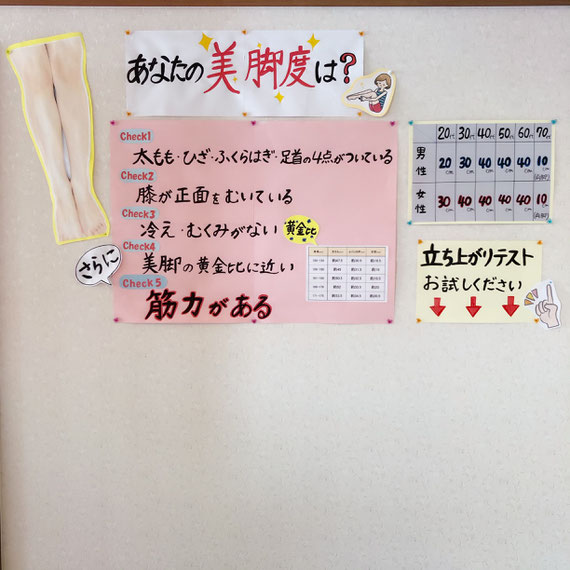 あなたの美脚度は?
Check1
太もも・ひざ・ふくらはぎ・足首の4点がついている
Check2
膝が正面をむいている
Check3
冷え・むくみがない
黄金比
さらに
Check4
美脚の黄金比に近い
Check5
筋力がある
20代 30代 40代 50代 60代 70代
男性 20cm 30cm 40cm 40cm 40cm 10cm
女性 30cm 40cm 40cm 40cm 40cm 10cm
立ち上がりテスト
お試しください